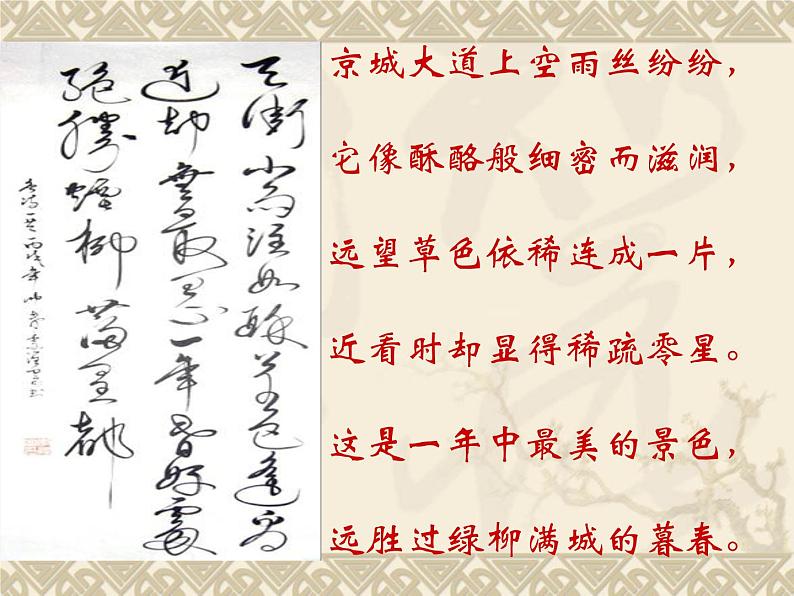 天街小雨潤如酥草色遙看
近却無最是一年春好處
絕勝煙柳滿皇都
京城大道上空雨丝纷纷，
它像酥酪般细密而滋润，
远望草色依稀连成一片，
近看时却显得稀疏零星。
这是一年中最美的景色，
远胜过绿柳满城的暮春。